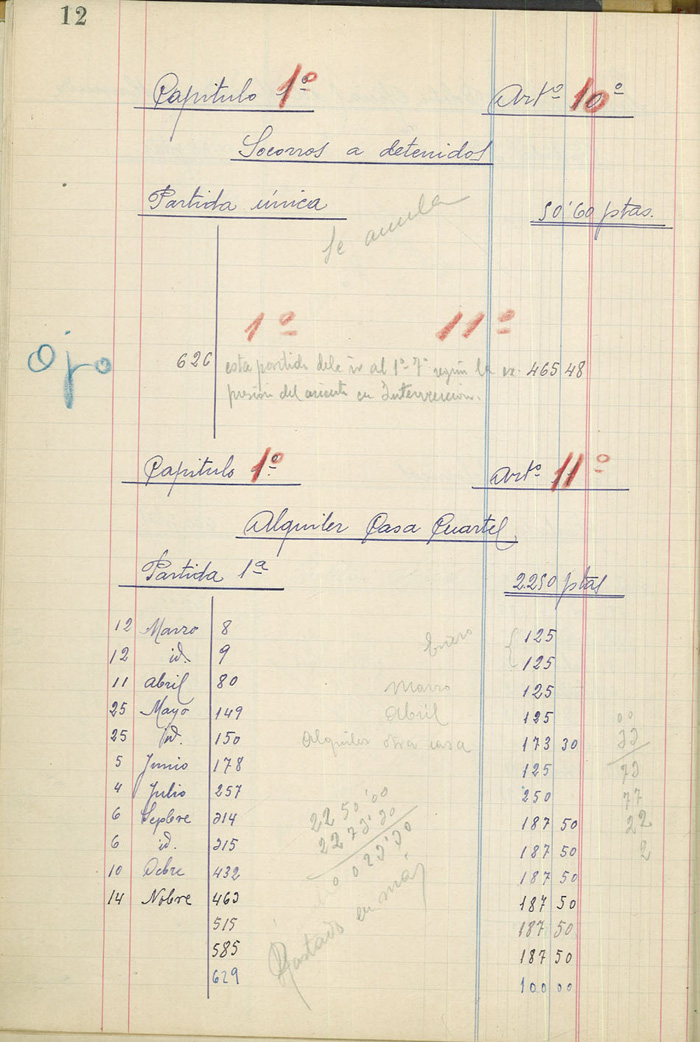 12
Capitulo 1º Artº 10º
Socorros a detenidos
Partida única 50'60 ptas.
Se anula
1º 11º
Ojo
626 esta partida debe ir al 1º-7º según la ex 465 48
presión del asiento en Intervención.
Capitulo 1º Artº 11º
Alquiler Casa Cuartel
Partida 1ª 2250 ptas
12 Marzo 8 Enero { 125
12 id. 9 125
11 Abril 80 Marzo 125
25 Mayo 149 Abril 125 00
25 id. 150 Alquiler otra casa 173 30 33
5 Junio 178 125 73
4 Julio 257 250 77
6 Sepbre 314 2250'00 187 50 22
6 id. 315 2273'30 187 50 2
10 Octbre 432 0023'30 187 50
14 Nobre 463 187 50
515 Gastado en más 187 50
585 187 50
629 100 00